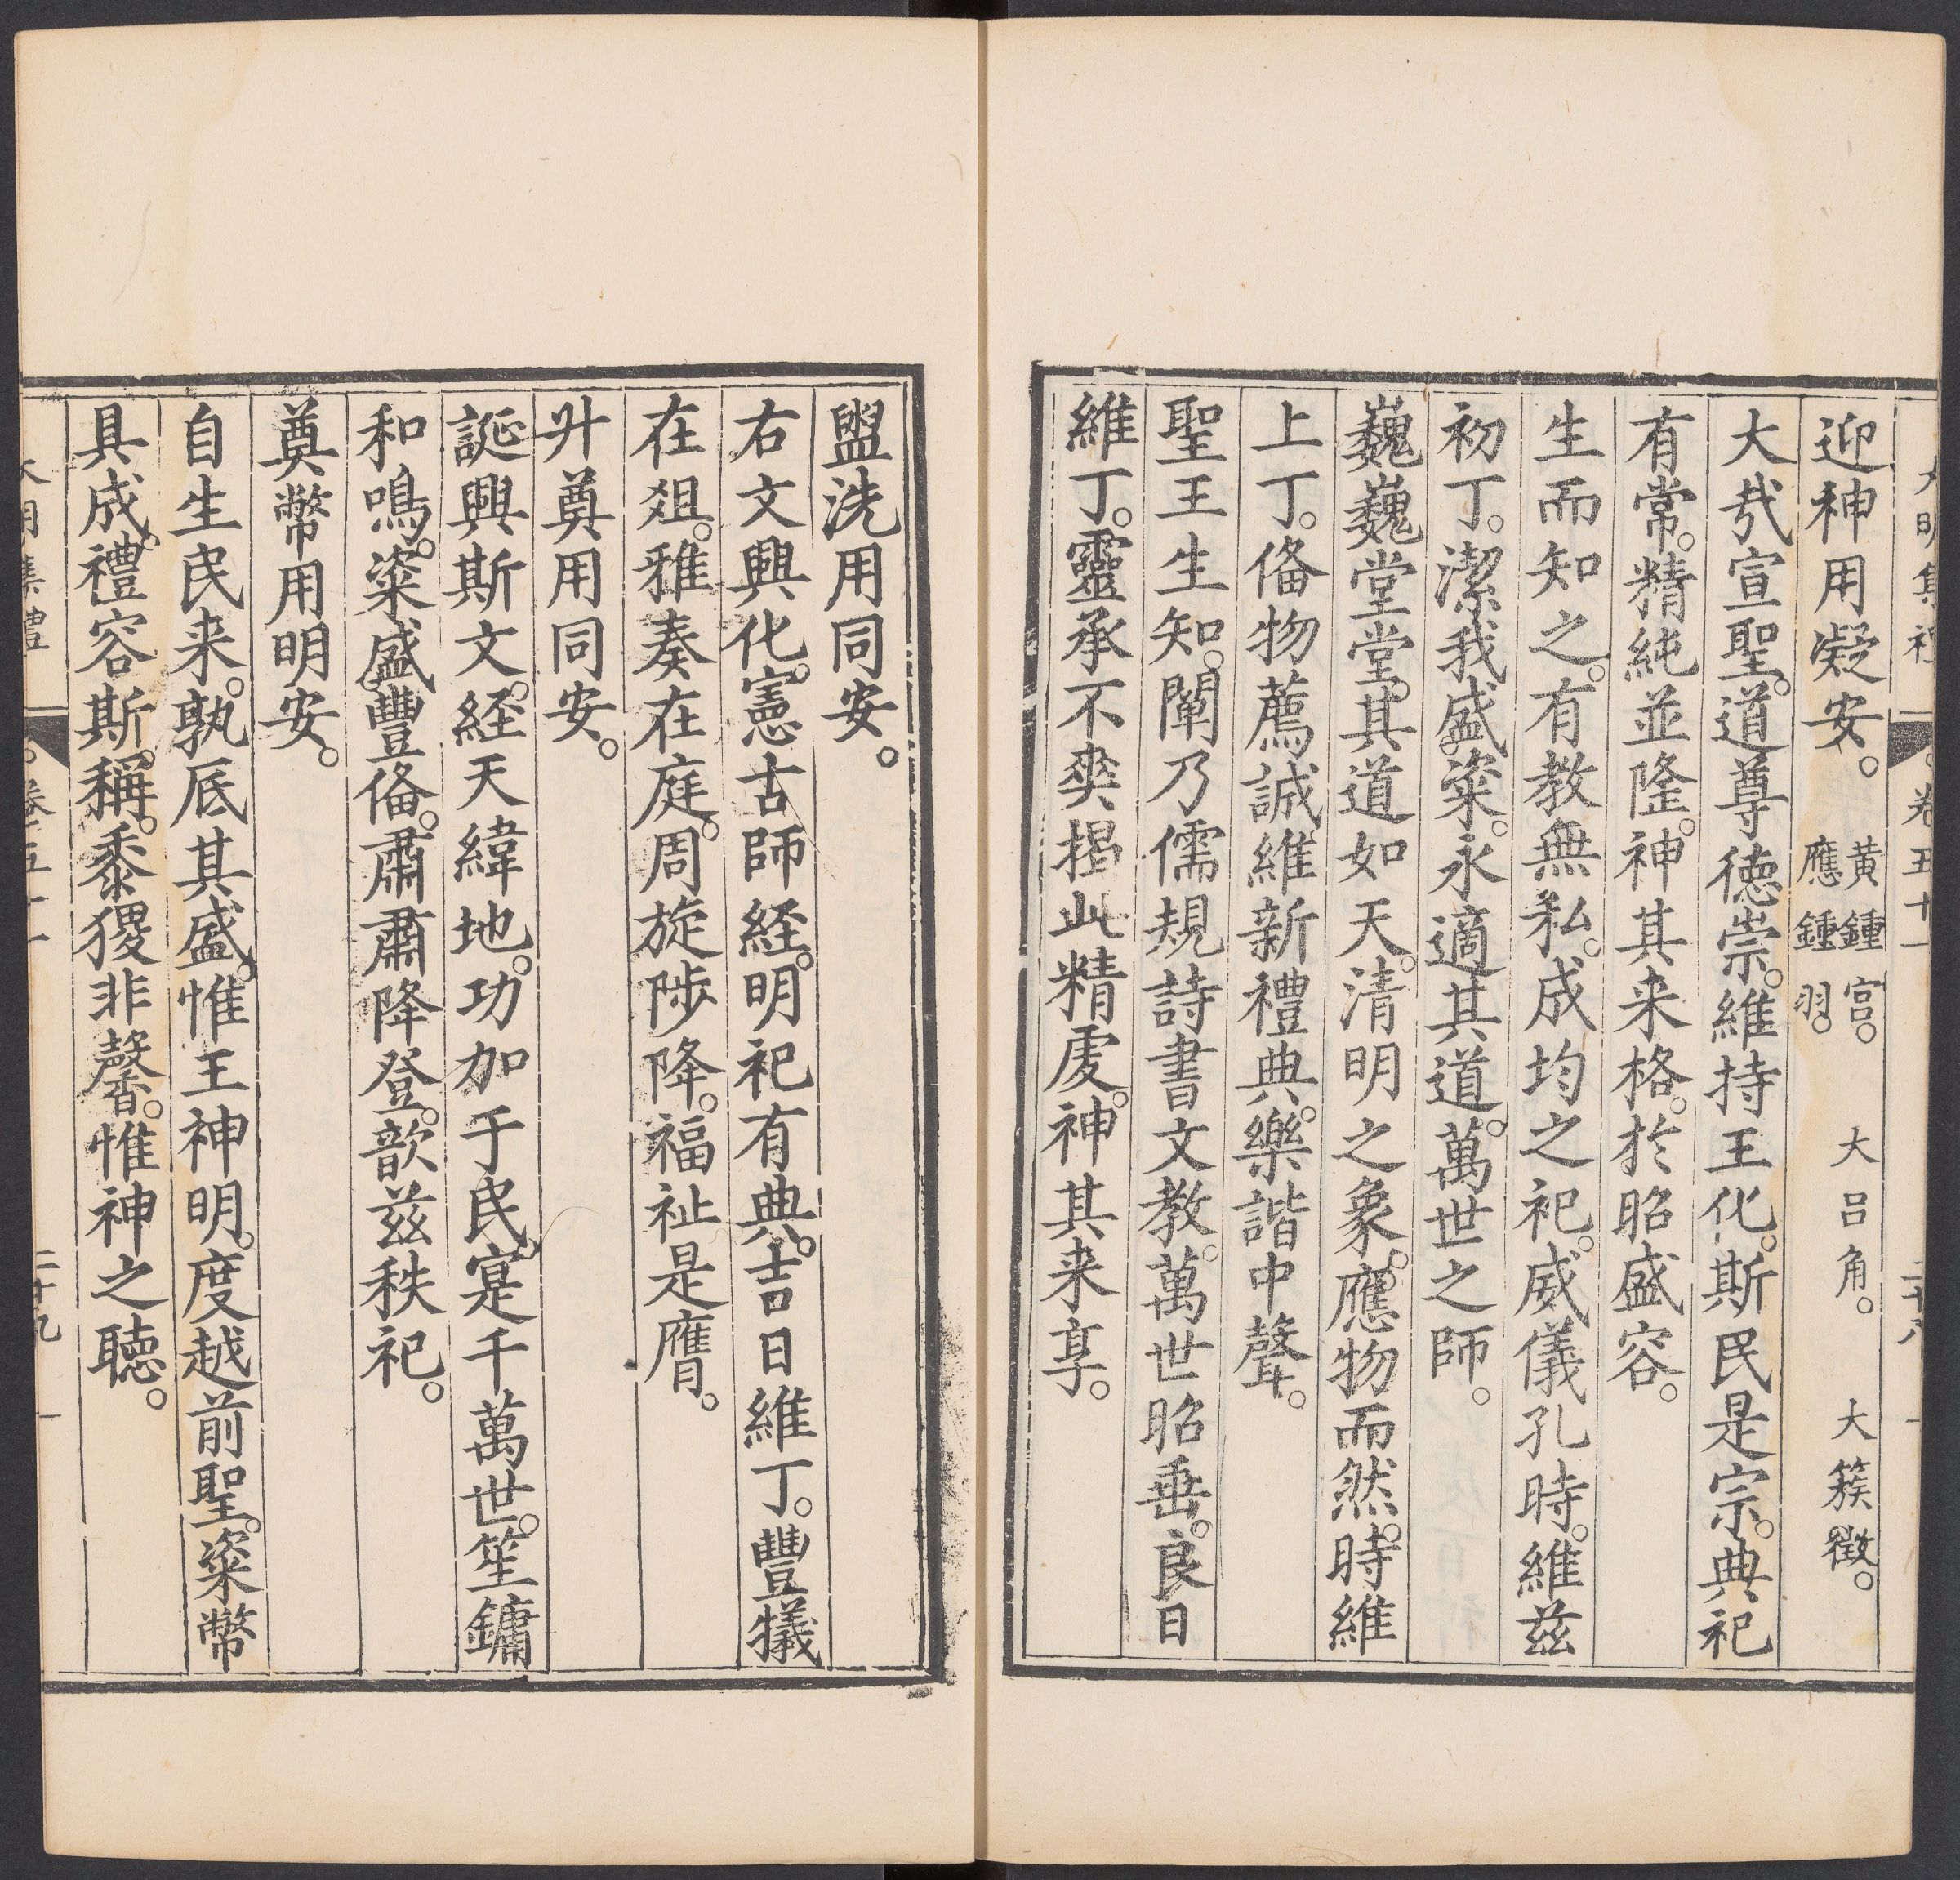 大明集禮 卷五十一 二十八
迎神用凝安。黄鍾宮。大呂角。大簇徵。應鍾羽。
大㦲宣聖。道尊德崇。維持王化。斯民是宗。典祀
有常。精純並隆。神其来格。於昭盛容。
生而知之。有教無私。成均之祀。威儀孔時。維兹
初丁。潔我盛粢。永適其道。萬世之師。
巍巍堂堂。其道如天。清明之象。應物而然。時維
上丁。俻物薦誠。維新禮典。樂諧中聲。
聖王生知。闡乃儒規。詩書文教。萬世昭垂。良日
維丁。靈承不爽。揭此精虔。神其来享。
盥洗用同安。
右文興化。憲古師経。明祀有典。吉日維丁。豐犧
在俎。雅奏在庭。周旋陟降。福祉是膺。
升奠用同安。
誕興斯文。経天緯地。功加于民。寔千萬世。笙鏞
和鳴。粢盛豐俻。肅肅降登。歆兹秩祀。
奠幣用明安。
自生民来。孰底其盛。惟王神明。度越前聖。粢幣
具成。禮容斯稱。黍稷非馨。惟神之聽。
大明集禮 卷五十一 二十九